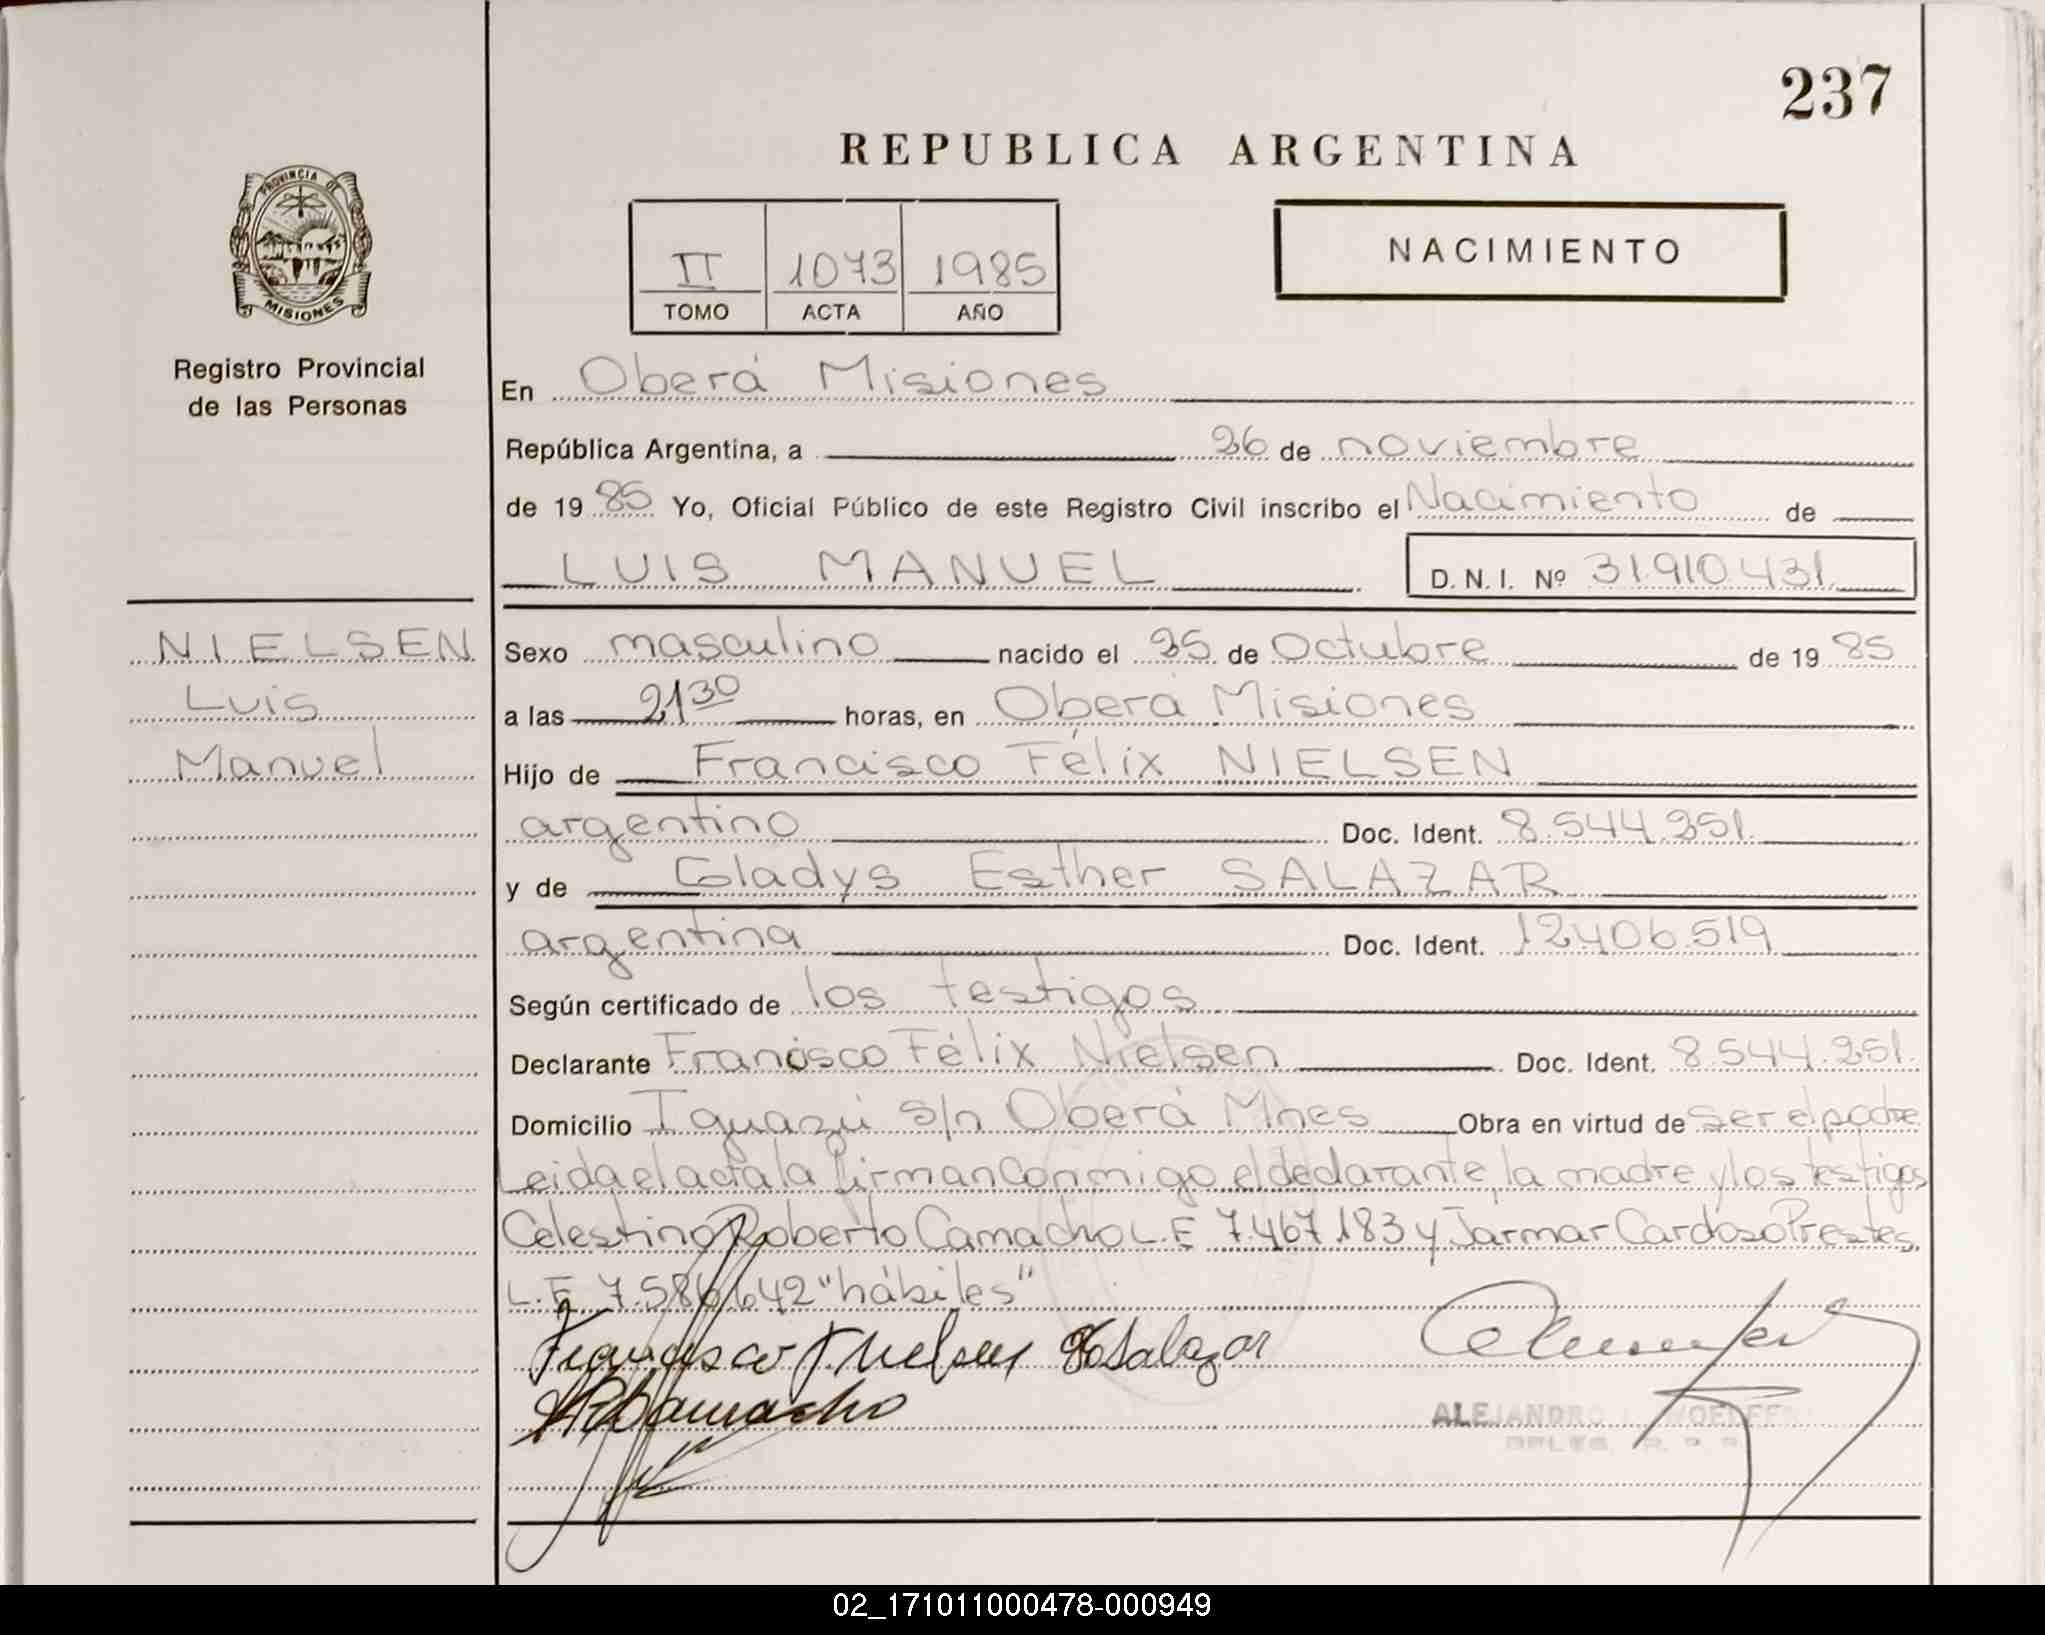 237
REPUBLICA ARGENTINA
PROVINCIA DE
MISIONES
Registro Provincial
de las Personas
II 1073 1985
TOMO ACTA AÑO
NACIMIENTO
En Oberá Misiones
República Argentina, a 26 de noviembre
de 1985 Yo, Oficial Público de este Registro Civil inscribo el Nacimiento de
LUIS MANUEL D.N.I. Nº 31.910.431
NIELSEN
Luis
Manuel
Sexo masculino nacido el 25 de Octubre de 1985
a las 21 30 horas, en Oberá Misiones
Hijo de Francisco Félix NIELSEN
argentino Doc. Ident. 8.544.251.
y de Gladys Esther SALAZAR
argentina Doc. Ident. 12.406.519
Según certificado de los testigos
Declarante Francisco Félix Nielsen Doc. Ident. 8.544.251.
Domicilio Iguazú s/n Oberá Mnes Obra en virtud de ser el padre
Leida el acta la firman conmigo el declarante, la madre y los testigos
Celestino Roberto Camacho L.E 7.467.183 y Jarmar Cardozo Prestes
L.E 7.586.642 "hábiles"
Francisco F Nielsen Salazar
Camacho
ALEJANDRO
02_171011000478-000949